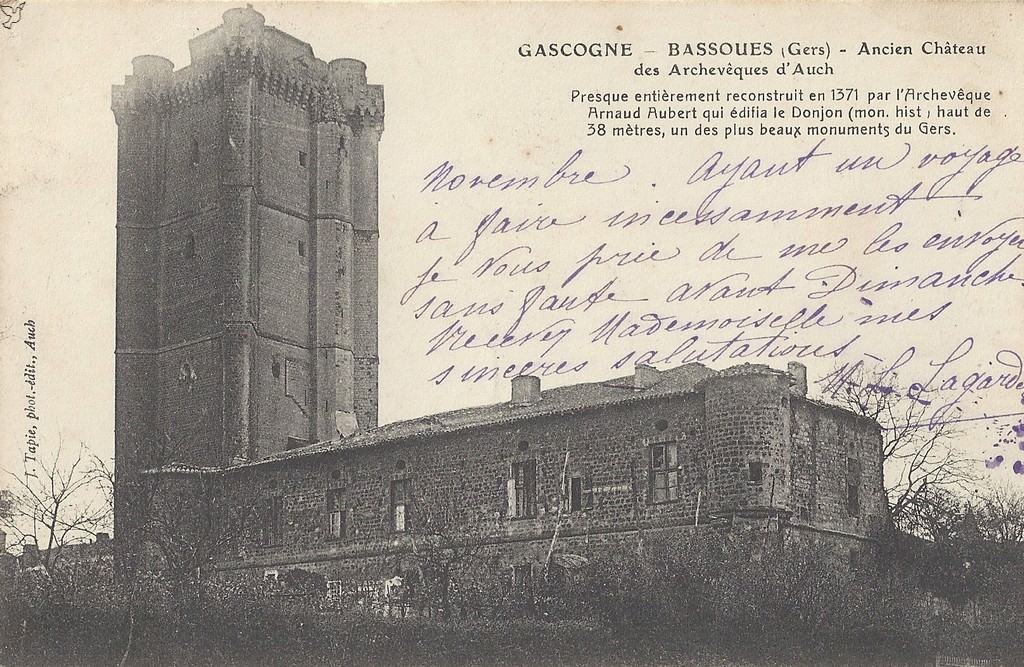 GASCOGNE - BASSOUES (Gers) - Ancien Château
des Archevêques d'Auch
Presque entièrement reconstruit en 1371 par l'Archevêque
Arnaud Aubert qui édifia le Donjon (mon. hist; haut de
38 mètres, un des plus beaux monuments du Gers.
Novembre. Ayant un voyage
à faire incessamment
je vous prie de me les envoyer
sans faute avant Dimanche
Recevez Mademoiselle mes
sincères salutations
M. L. Lagarde
J. Tapie, phot.-édit., Auch